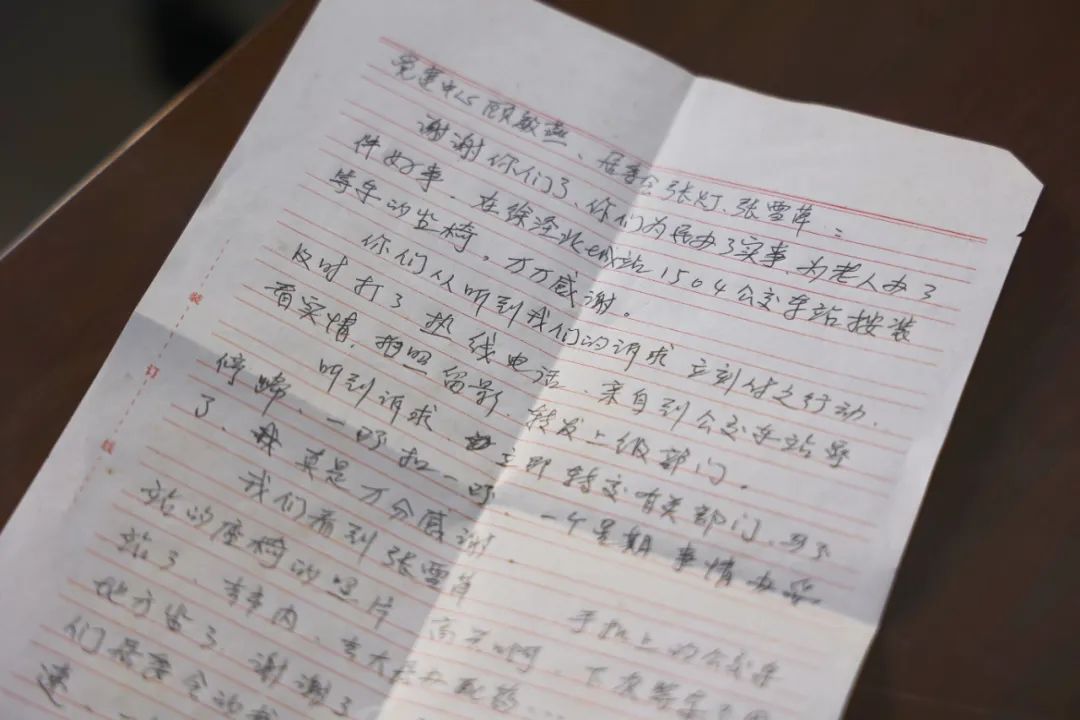 党建中心顾敏燕、居委会张灯、张雪萍：
谢谢你们了、你们为民办了实事、为老人办了
件好事．在徐泾北城站1504公交车站按装
等车的坐椅，万万感谢。
你们从听到我们的诉求 立刻付之行动．
及时打了热线电话．亲自到公交车站
看实情．拍照留影．转发上级部门。
听到诉求．立即转交有关部门．
停蹄．一环扣一环．一个星期事情办
了．我真是万分感谢．
我们看到张雪萍 手机上的公交车
站的座椅的照片 下次等车
站了．
地方坐了．谢谢了
们居委会的
速．
装
订
线